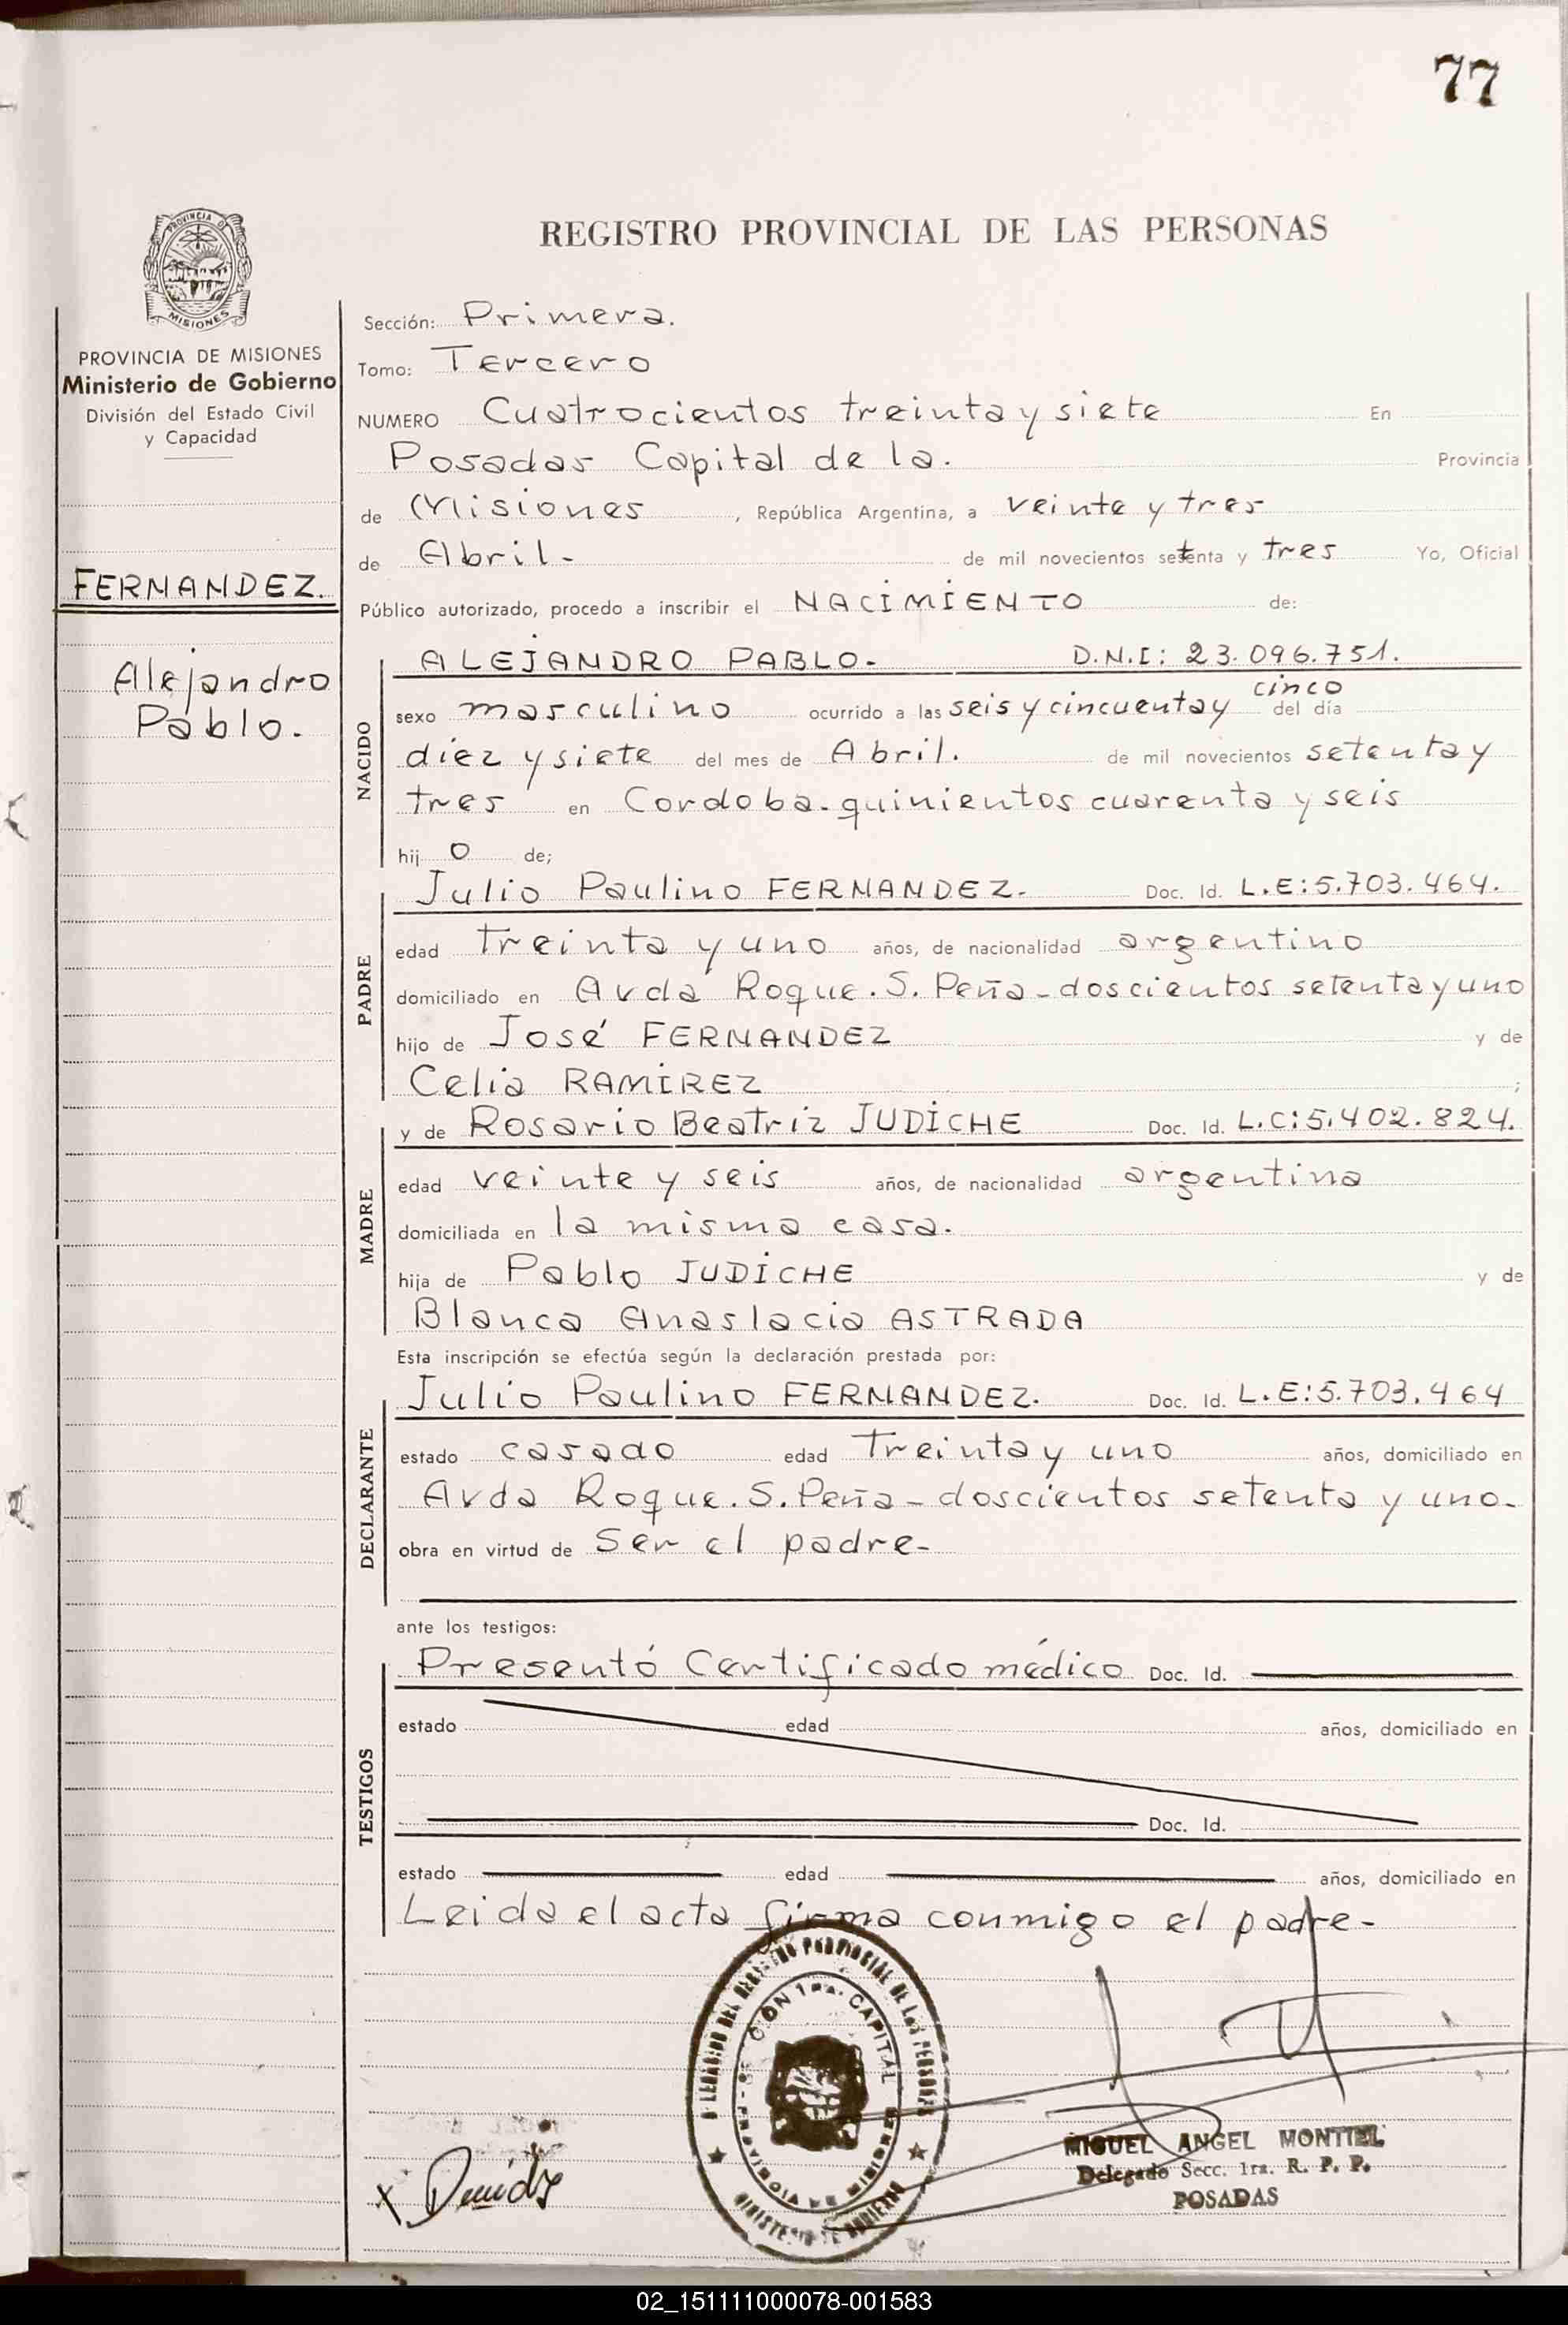 77
PROVINCIA DE
MISIONES
REGISTRO PROVINCIAL DE LAS PERSONAS
PROVINCIA DE MISIONES
Ministerio de Gobierno
División del Estado Civil
y Capacidad
FERNANDEZ.
Alejandro
Pablo.
Sección: Primera.
Tomo: Tercero
NUMERO Cuatrocientos treinta y siete En
Posadas Capital de la. Provincia
de Misiones, República Argentina, a veinte y tres
de Abril- de mil novecientos setenta y tres Yo, Oficial
Público autorizado, procedo a inscribir el NACIMIENTO de:
NACIDO
ALEJANDRO PABLO- D.N.I: 23.096.751.
cinco
sexo masculino ocurrido a las seis y cincuenta y del día
diez y siete del mes de Abril. de mil novecientos setenta y
tres en Cordoba-quinientos cuarenta y seis
hij o de;
PADRE
Julio Paulino FERNANDEZ. Doc. Id. L.E:5.703.464.
edad treinta y uno años, de nacionalidad argentino
domiciliado en Avda Roque.S.Peña-doscientos setenta y uno
hijo de José FERNANDEZ y de
Celia RAMIREZ ;
MADRE
y de Rosario Beatriz JUDICHE Doc. Id. L.C:5.402.824.
edad veinte y seis años, de nacionalidad argentina
domiciliada en la misma casa.
hija de Pablo JUDICHE y de
Blanca Anaslacia ASTRADA
Esta inscripción se efectúa según la declaración prestada por:
DECLARANTE
Julio Paulino FERNANDEZ. Doc. Id. L.E:5.703.464
estado casado edad Treinta y uno años, domiciliado en
Avda Roque.S.Peña-doscientos setenta y uno-
obra en virtud de Ser el padre-
ante los testigos:
TESTIGOS
Presentó Certificado médico Doc. Id.
estado edad años, domiciliado en
Doc. Id.
estado edad años, domiciliado en
Leida el acta firma conmigo el padre-
DEL REGISTRO PROVINCIAL DE LAS PERSONAS
SECCION 1ra. CAPITAL
PROVINCIA DE MISIONES
MINISTERIO DE GOBIERNO
MIGUEL ANGEL MONTIEL
Delegado Secc. 1ra. R. P. P.
POSADAS
02_151111000078-001583